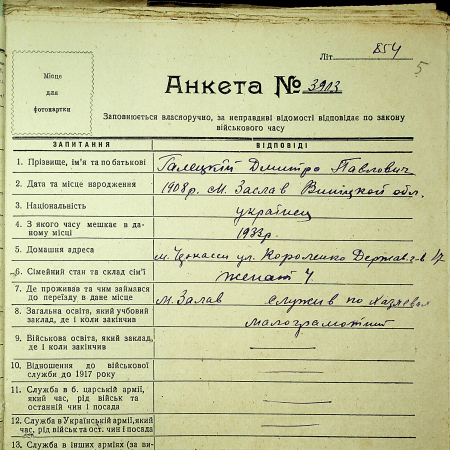 Літ. 854
5
Місце
для
фотокартки
Анкета № 3903
Заповнюється власноручно, за неправдиві відомості відповідає по закону
військового часу
ЗАПИТАННЯ ВІДПОВІДІ
1. Прізвище, ім'я та по батькові Галецкій Дмитро Павлович
2. Дата та місце народження 1908 р. м. Заслав Вініцкой обл.
3. Національність українец
4. З якого часу мешкає в да-
ному місці 1933 р.
5. Домашня адреса м. Черкасси ул. Короленко Держав
6. Сімейний стан та склад сім'ї женат 4
7. Де проживав та чим займався
до переїзду в дане місце м. Залав служив по
8. Загальна освіта, який учбовий
заклад, де і коли закінчив малограмотний
9. Військова освіта, який заклад,
де і коли закінчив
10. Відношення до військової
служби до 1917 року
11. Служба в б. царській армії,
який час, рід військ та
останній чин і посада
12. Служба в Українській армії, який
час, рід військ та ост. чин і посада
13. Служба в інших арміях (за ви-